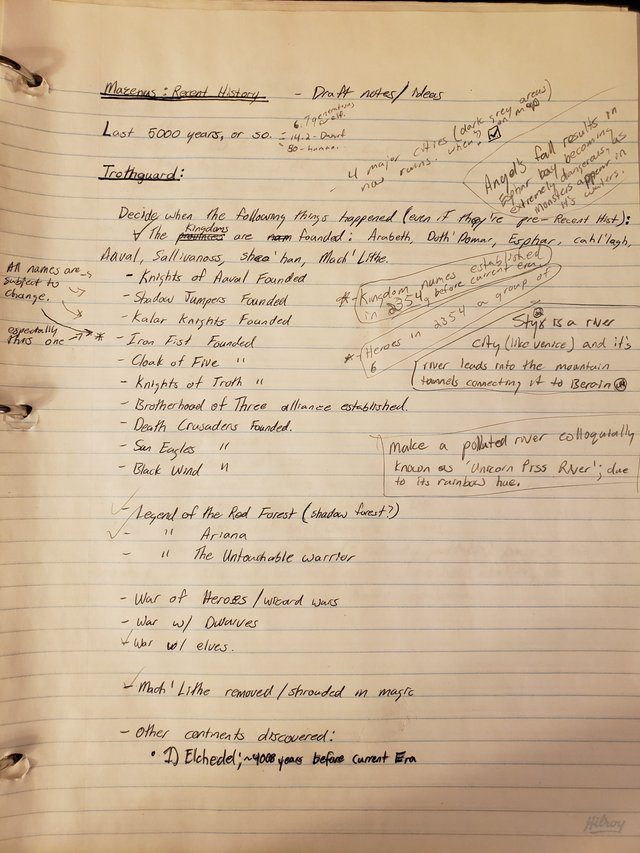 Mazenus: Recent History - Draft notes/Ideas
Last 5000 years, or so.
6.7 generations
for elf.
= 14.2 - Dwarf
= 50 - human.
- 4 major cities (dark grey areas
now ruins. when? on map)
Angel's fall results in
Esphar bay becoming
extremely dangerous, as
monsters appear in
it's waters.
Trothguard:
Decide when the following things happened (even if they're pre-Recent Hist):
Kingdoms
* The provinces are founded: Arabeth, Doth'Domar, Esphar, cahl'lagh,
Aaval, Sallivanoss, shea'han, Mach'Lithe.
All names are
subject to
change.
especially
this one
- Knights of Aaval Founded
- Shadow Jumpers Founded
- Kalar Knights Founded
- Iron Fist Founded
- Cloak of Five "
- Knights of Troth "
- Brotherhood of Three alliance established.
- Death Crusaders Founded.
- Sun Eagles "
- Black Wind "
* - Kingdom names established
in 2354 before current era.
* - Heroes in 2354 a group of
6
Styx is a river
city (like venice) and it's
river leads into the mountain
tunnels connecting it to Berain
Make a polluted river colloquially
known as 'Unicorn Piss River'; due
to its rainbow hue.
- Legend of the Red Forest (shadow forest?)
- " Ariana
- " The Untouchable warrior
- War of Heroes/wizard wars
- War w/ Dwarves
- War w/ elves.
- Mach'Lithe removed/shrouded in magic
- Other continents discovered:
• 1) Elchedd; ~4000 years before current Era
Hilroy